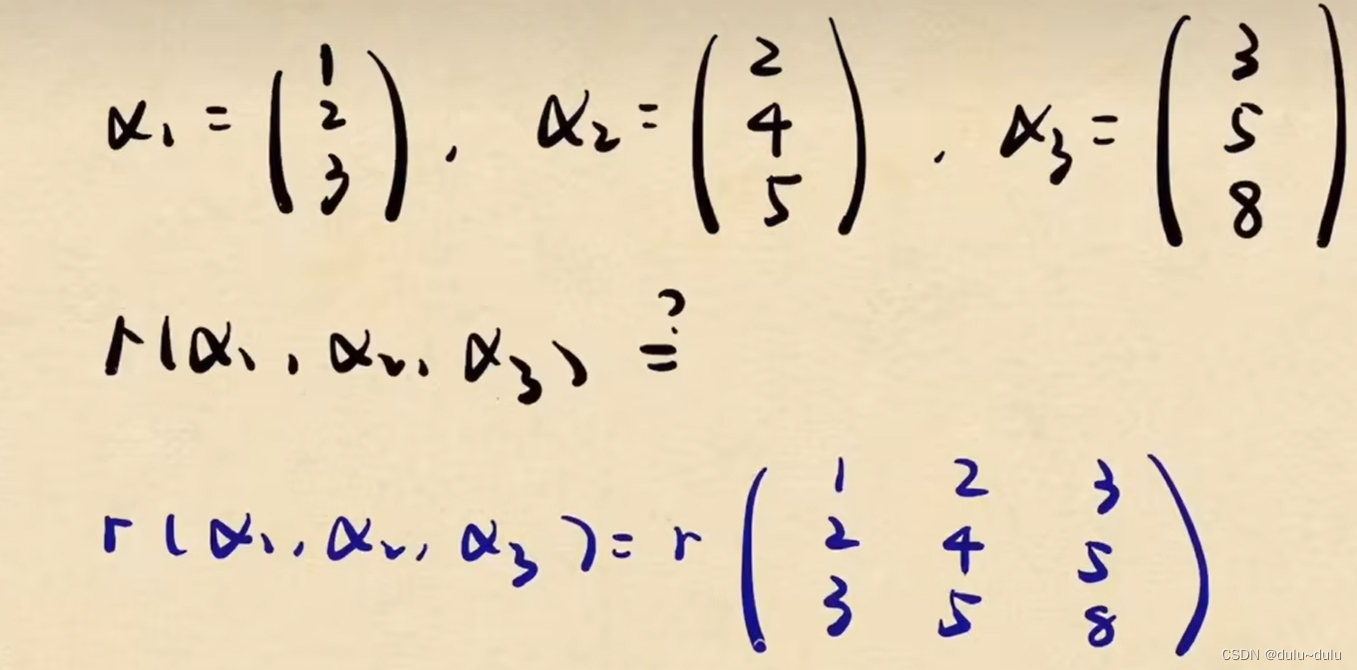 α₁ = (1 2 3), α₂ = (2 4 5), α₃ = (3 5 8)
r(α₁, α₂, α₃) ≟
r(α₁, α₂, α₃) = r (1 2 3
2 4 5
3 5 8)
CSDN @dulu~dulu